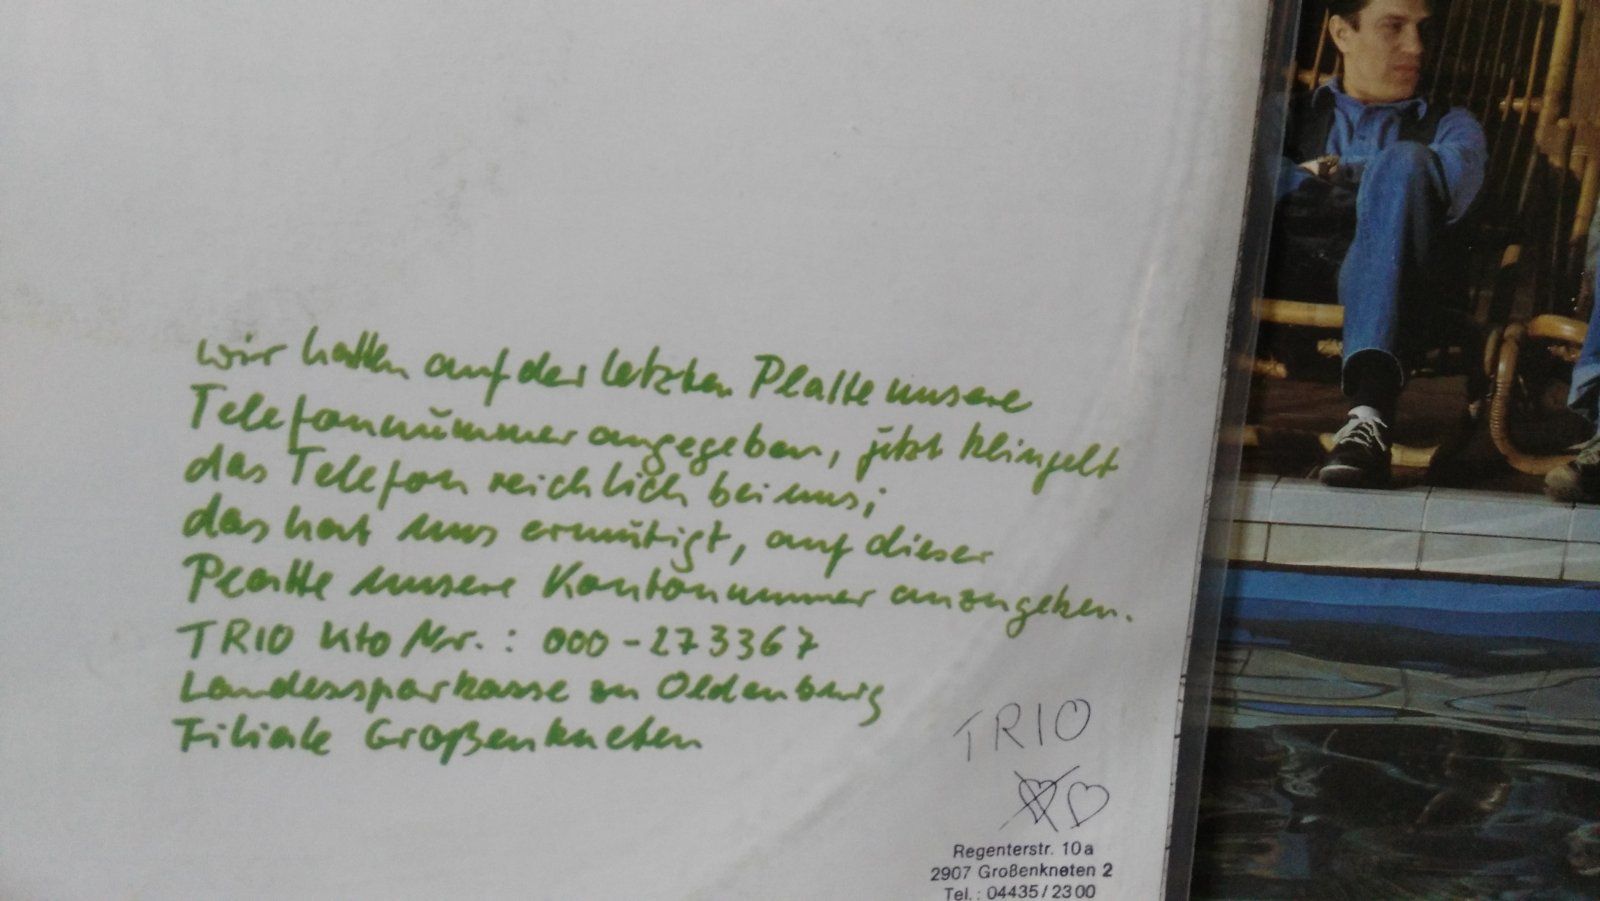 wir hatten auf der letzten Platte unsere
Telefonnummer angegeben, jetzt klingelt
das Telefon reichlich bei uns;
das hat uns ermutigt, auf dieser
Platte unsere Kontonummer anzugeben.
TRIO Kto Nr.: 000-273367
Landessparkasse zu Oldenburg
Filiale Großenkneten
TRIO
Regenterstr. 10a
2907 Großenkneten 2
Tel.: 04435/2300